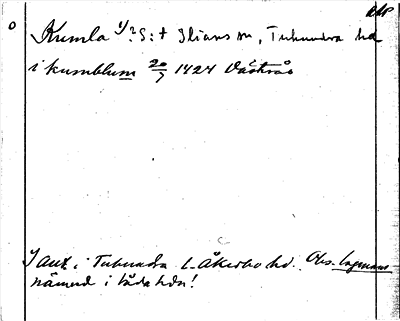 Upl
Kumla 1/? S:t Ilians sn, Tuhundra hd
i kumblum 20/7 1424 Västrås
I ant. i Tuhundra l. Åkerbo hd. Obs. lagmans-
nämnd i båda hdn!